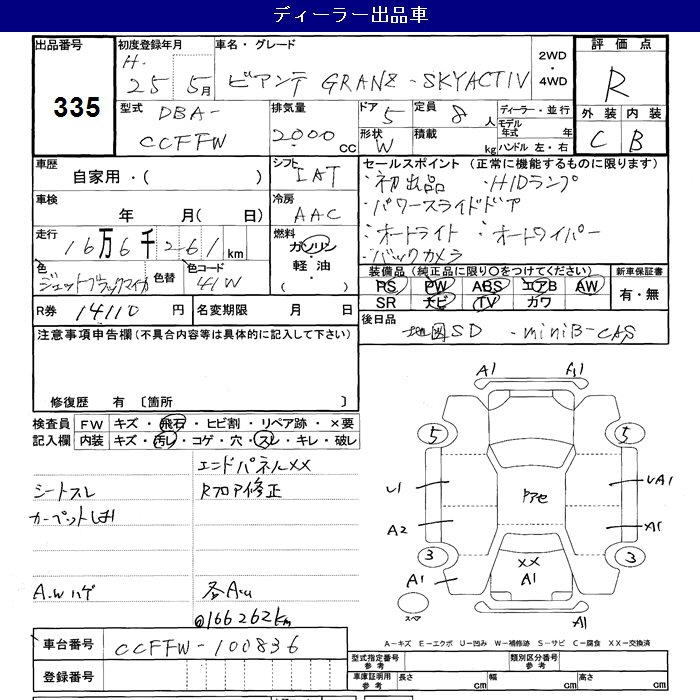 ディーラー出品車
出品番号 初度登録年月 車名・グレード 2WD・4WD 評価点
335
H. 25年 5月 ビアンテ GRANZ-SKYACTIV R
型式 DBA-CCFFW 排気量 2000cc ドア 5 定員 8人 ディーラー・並行 外装 内装
形状 W 積載 kg モデル年式 年 ハンドル 左・右 C B
車歴 自家用・( ) シフト IAT セールスポイント (正常に機能するものに限ります)
・初出品 ・HIDランプ
車検 年 月( 日) 冷房 AAC ・パワースライドドア
走行 16万6千261km 燃料 ガソリン・軽油・( ) ・オートライト ・オートワイパー
・バックカメラ
色 ジェットブラックマイカ 色替 色コード 41W 装備品 (純正品に限り○をつけてください) 新車保証書
PS PW ABS エアB AW 有・無
SR ナビ TV カワ
R券 14110円 名変期限 月 日 後日品 地図SD ・miniB-CAS
注意事項申告欄(不具合内容等は具体的に記入して下さい)
修復歴 有 〔箇所 〕
検査員記入欄 FW キズ・飛石・ヒビ割・リペア跡・×要
内装 キズ・汚レ・コゲ・穴・スレ・キレ・破レ
エンドパネルXX
シートスレ Rフロア修正
A.Wハゲ
@166262km
車台番号 CCFFW-100836
登録番号
A1
5 5
U1 アセ UA1
A2 A1
3 XX 3
A1 A1
スペア A1
A-キズ E-エクボ U-凹み W-補修跡 S-サビ C-腐食 XX-交換済
型式指定番号 参考 類別区分番号 参考
車庫証明用 参考 長さ cm 幅 cm 高さ cm